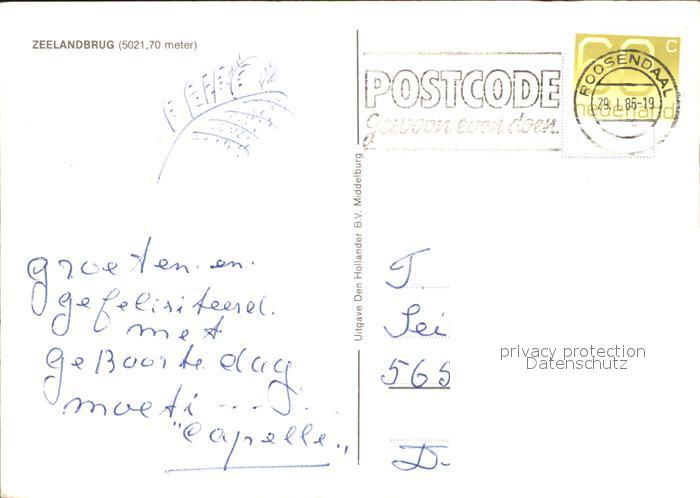 ZEELANDBRUG (5021,70 meter)
POSTCODE
gewoon even doen.
60 c
nederland
ROOSENDAAL
29. I. 86-19
Uitgave Den Hollander B.V. Middelburg
groeten. en.
gefelisiteerd.
met
geBoorte dag
moeti ....
"Capelle."
T.
Sei
565
D-
privacy protection
Datenschutz